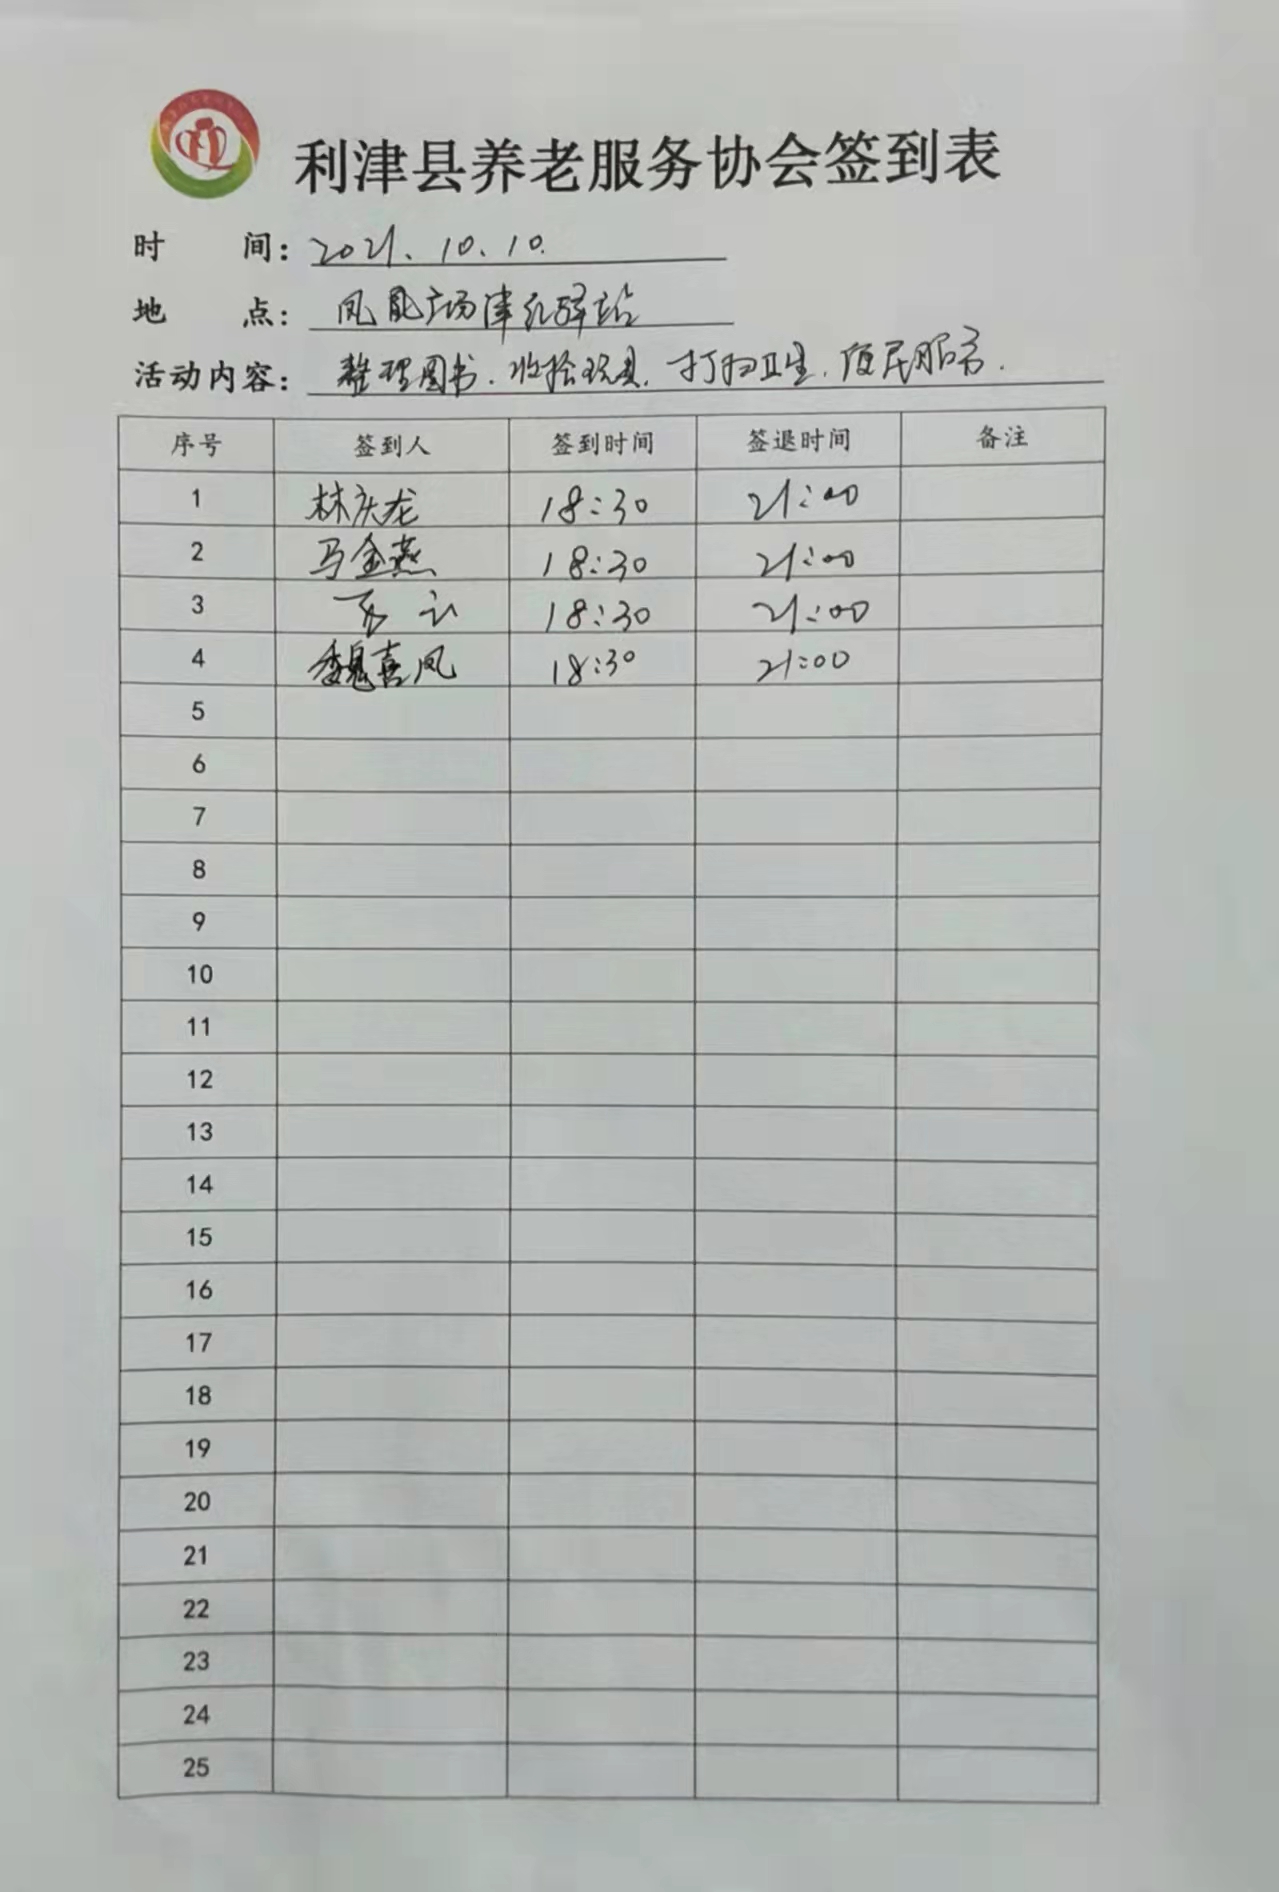 利津县养老服务协会签到表
时 间: 2021.10.10.
地 点: 凤凰广场津红驿站
活动内容: 整理图书.收拾玩具.打扫卫生.便民服务.
序号 签到人 签到时间 签退时间 备注
1 林庆龙 18:30 21:00
2 马金燕 18:30 21:00
3 18:30 21:00
4 魏喜凤 18:30 21:00
5
6
7
8
9
10
11
12
13
14
15
16
17
18
19
20
21
22
23
24
25